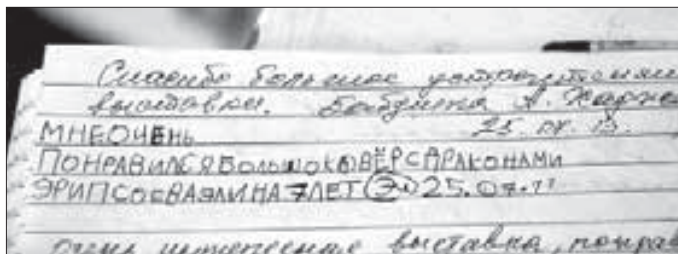 Спасибо большое устроителям
выставки. Бабушка А.
25.
МНЕ ОЧЕНЬ
ПОНРАВИЛСЯ БОЛЬШО КОВЁР С ДРАКОНАМИ
ЭЛИНА 7 ЛЕТ 25.07.11
очень интересная выставка, понрав